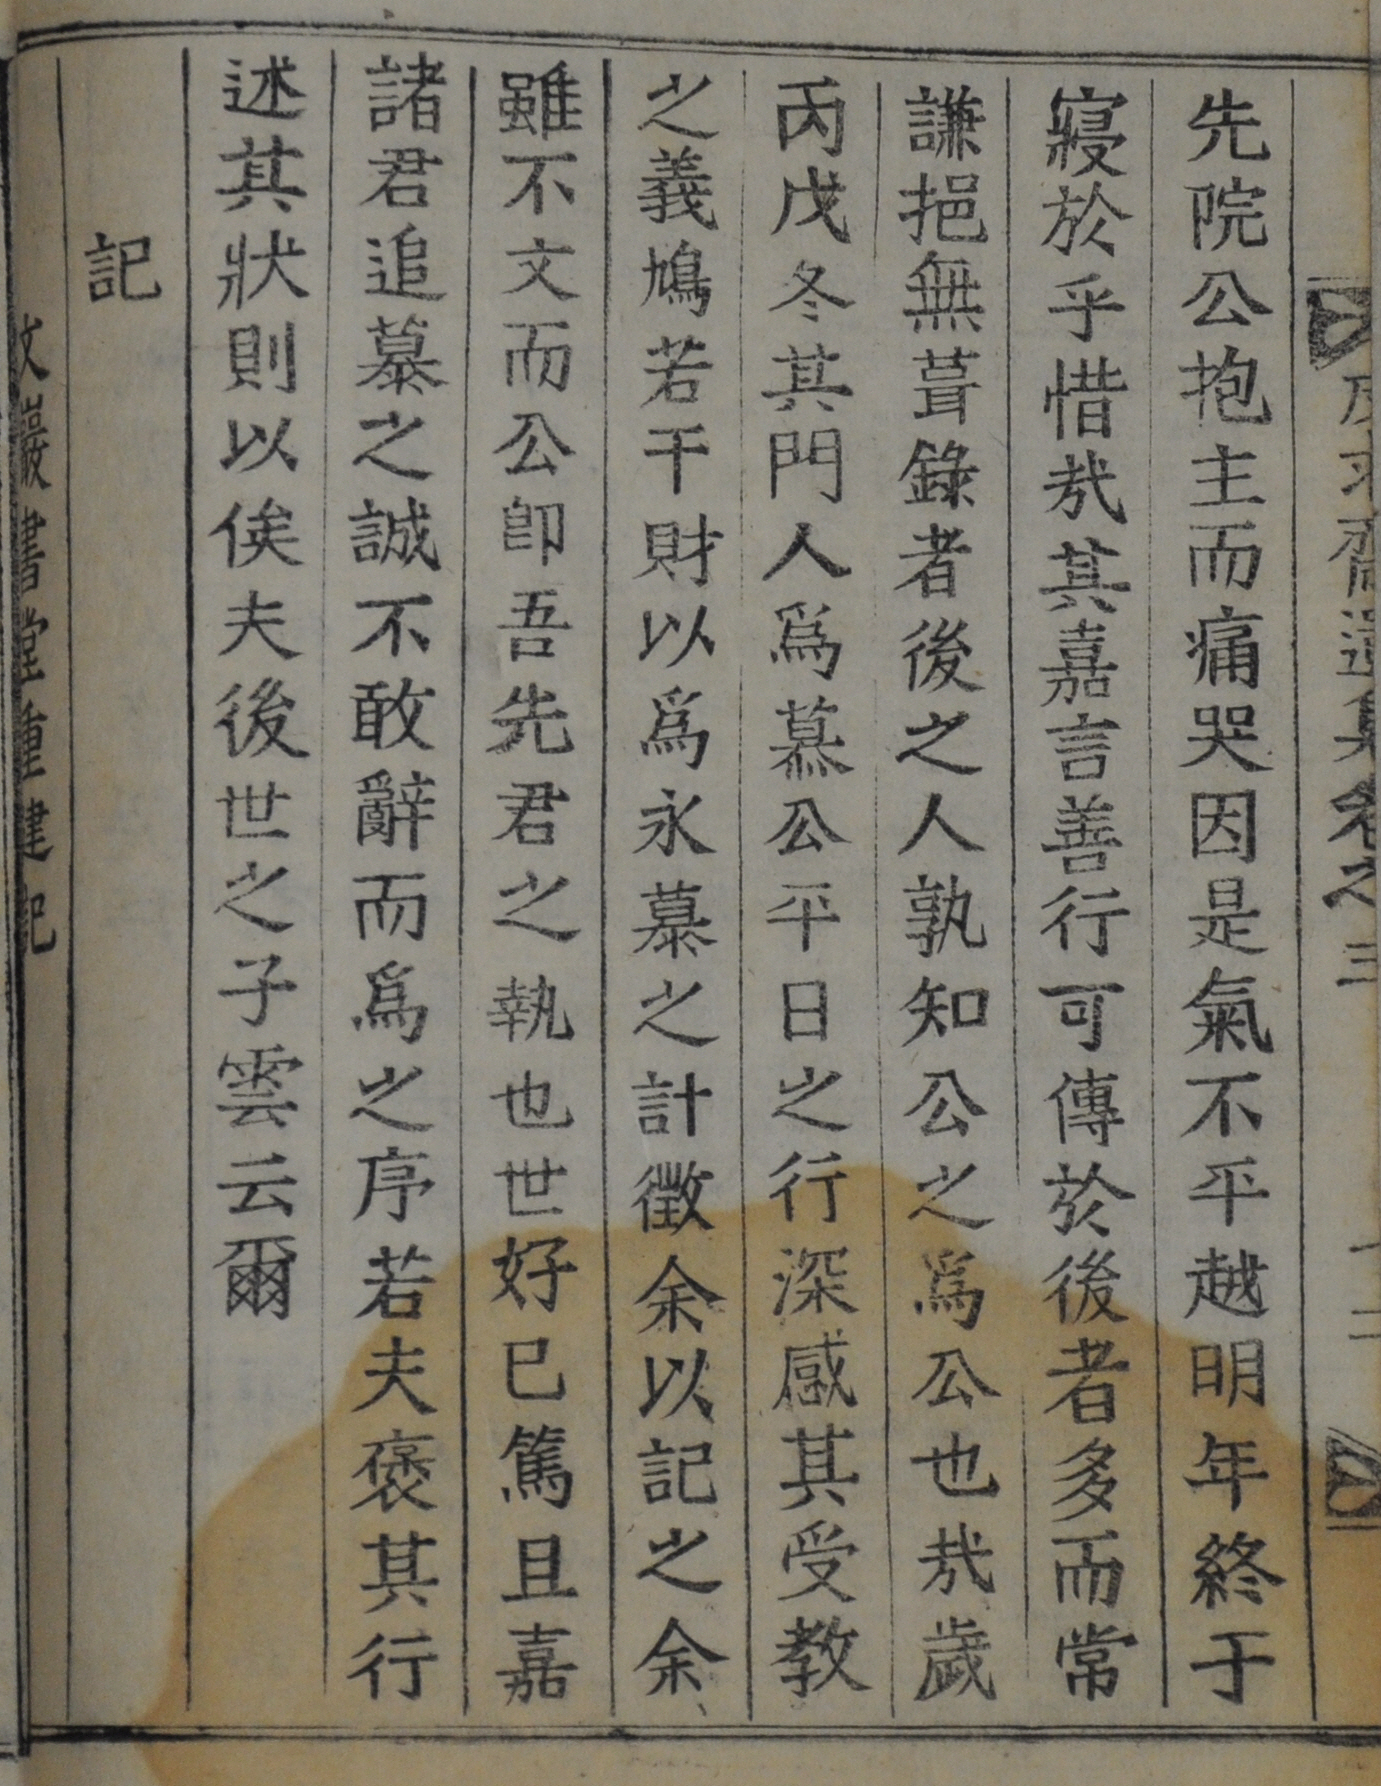 先院公抱主而痛哭因是氣不平越明年終于
寢於乎惜㢤其嘉言善行可傳於後者多而常
謙挹無葺錄者後之人孰知公之爲公也㢤歲
丙戌冬其門人爲慕公平日之行深感其受教
之義鳩若干財以爲永慕之計徵余以記之余
雖不文而公卽吾先君之執也世好已篤且嘉
諸君追慕之誠不敢辭而爲之序若夫褒其行
述其狀則以俟夫後世之子雲云爾
記
巖書堂重建記